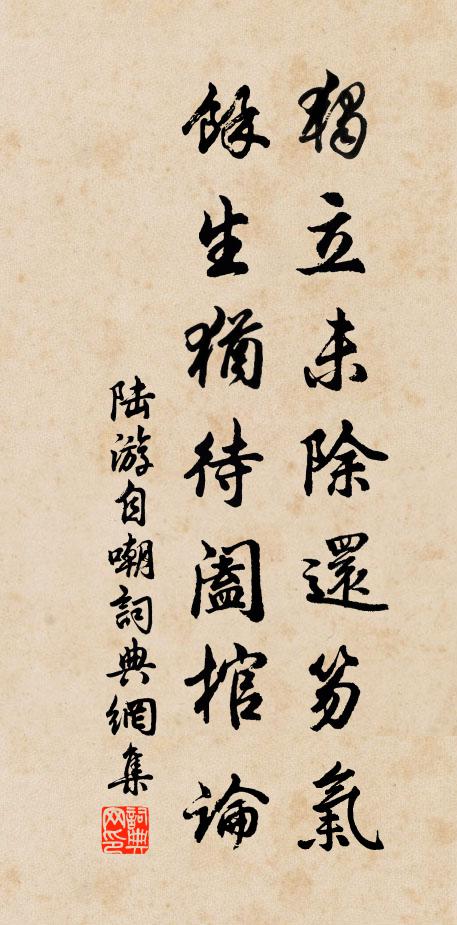 獨立未除還笏氣
餘生猶待闔棺論
陆游自嘲詞典網集
詞典
网印